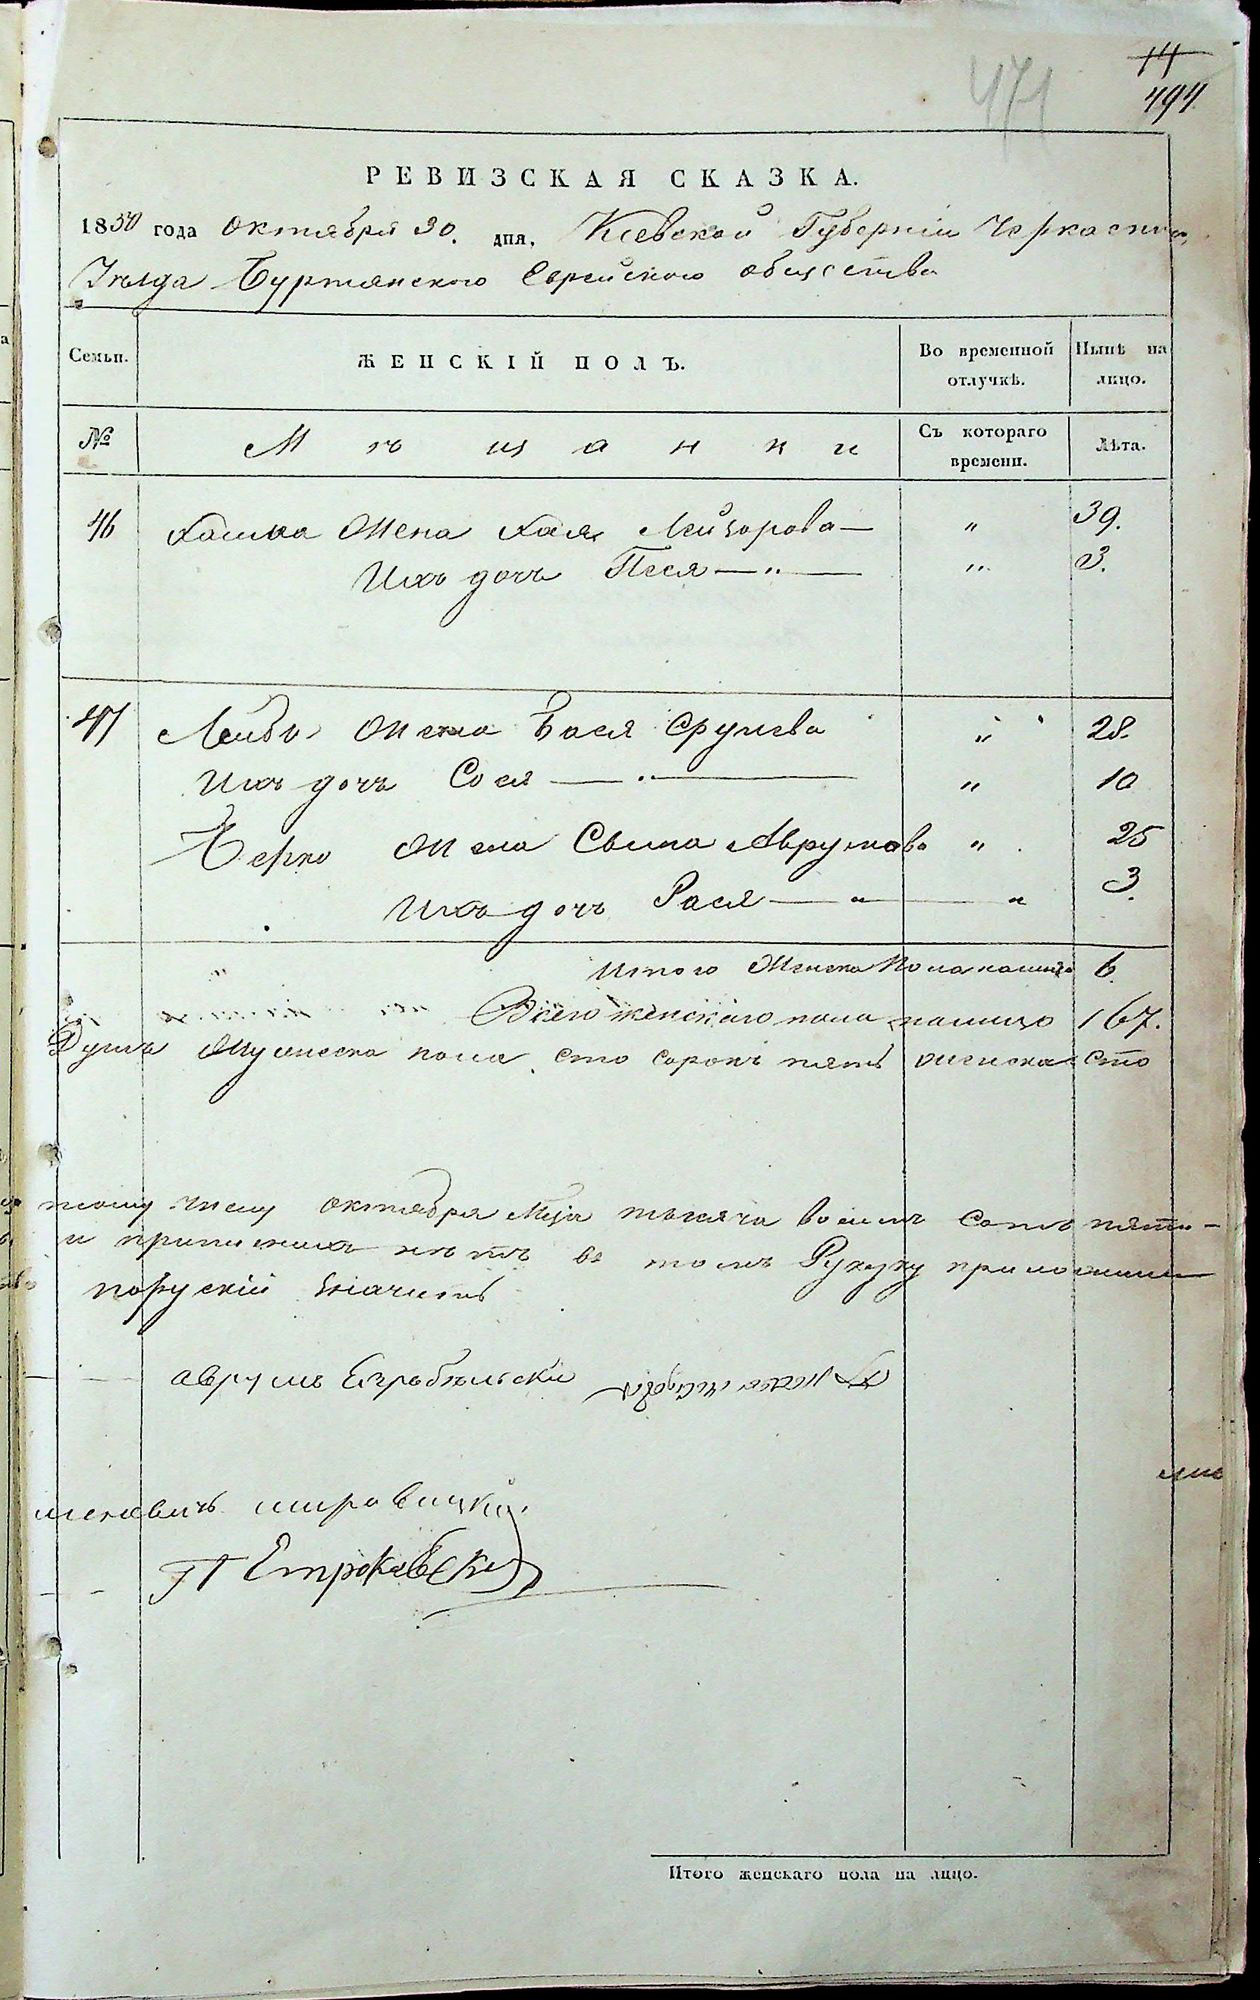 14
494
471
РЕВИЗСКАЯ СКАЗКА.
1850 года Октября 30. дня, Киевской Губерніи Черкаскаго
Уезда Буртянского Еврейского общества
Семьи. ЖЕНСКІЙ ПОЛЪ. Во временной отлучкѣ. Нынѣ на лицо.
№ Мѣщанки Съ котораго времени. Лѣта.
46 жена Хая Лейзорова — " 39.
Ихъ дочь Песя — " — " 3.
47 Лейбы жена Бася Срулева " 28.
Ихъ дочь Сося — " — " 10
Берко жена Сима Аврумова " 25
Ихъ дочь Рася — " — " 3.
Итого женска пола налицо 6.
Всего женскаго пола налицо 167.
Душъ мужеска пола сто сорокъ пять женска сто
тому числу октября мца тысяча восемъ сотъ пяти-
и приписныхъ нетъ въ томъ Руку приложили
поруский значитъ
аврумъ
шировицкий.
Итого женскаго пола на лицо.